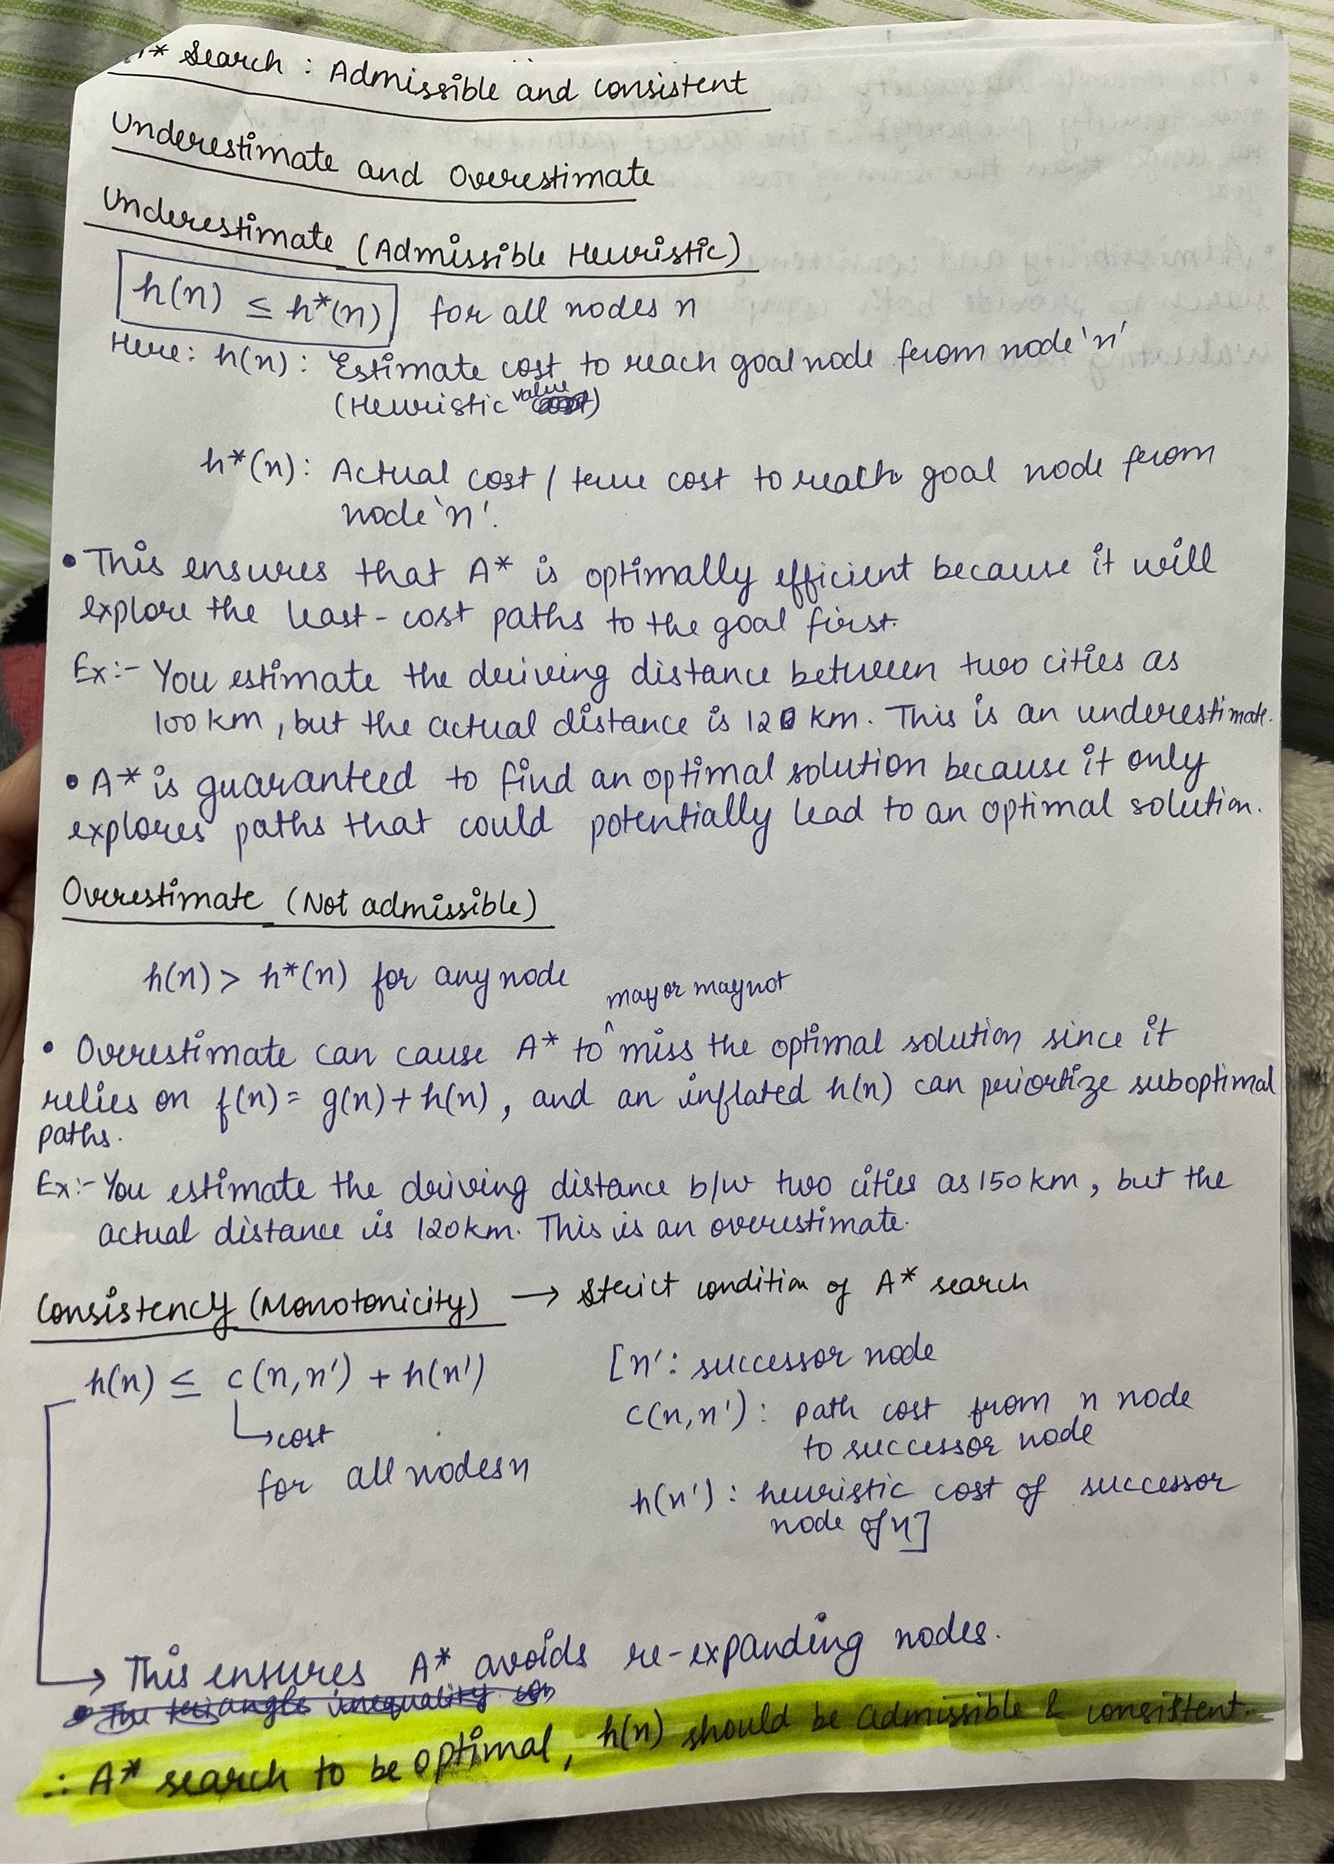 A* Search : Admissible and consistent
Underestimate and Overestimate
Underestimate (Admissible Heuristic)
h(n) ≤ h*(n) for all nodes n
Here: h(n) : Estimate cost to reach goal node from node 'n'
(Heuristic value)
h*(n) : Actual cost / true cost to reach goal node from
node 'n'.
• This ensures that A* is optimally efficient because it will
explore the least-cost paths to the goal first.
Ex:- You estimate the driving distance between two cities as
100 km, but the actual distance is 120 km. This is an underestimate.
• A* is guaranteed to find an optimal solution because it only
explores paths that could potentially lead to an optimal solution.
Overestimate (Not admissible)
h(n) > h*(n) for any node
may or may not
• Overestimate can cause A* to ^ miss the optimal solution since it
relies on f(n) = g(n) + h(n), and an inflated h(n) can prioritize suboptimal
paths.
Ex:- You estimate the driving distance b/w two cities as 150 km, but the
actual distance is 120 km. This is an overestimate.
Consistency (Monotonicity) → Strict condition of A* search
h(n) ≤ c(n,n') + h(n') [n' : successor node
→ cost c(n,n') : path cost from n node
to successor node
for all nodes n h(n') : heuristic cost of successor
node of n]
→ This ensures A* avoids re-expanding nodes.
• The triangle inequality con
∴ A* search to be optimal, h(n) should be admissible & consistent.